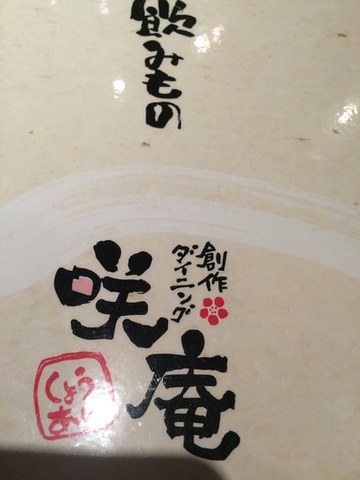 飲みもの
創作
ダイニング
咲庵
しょう
あん